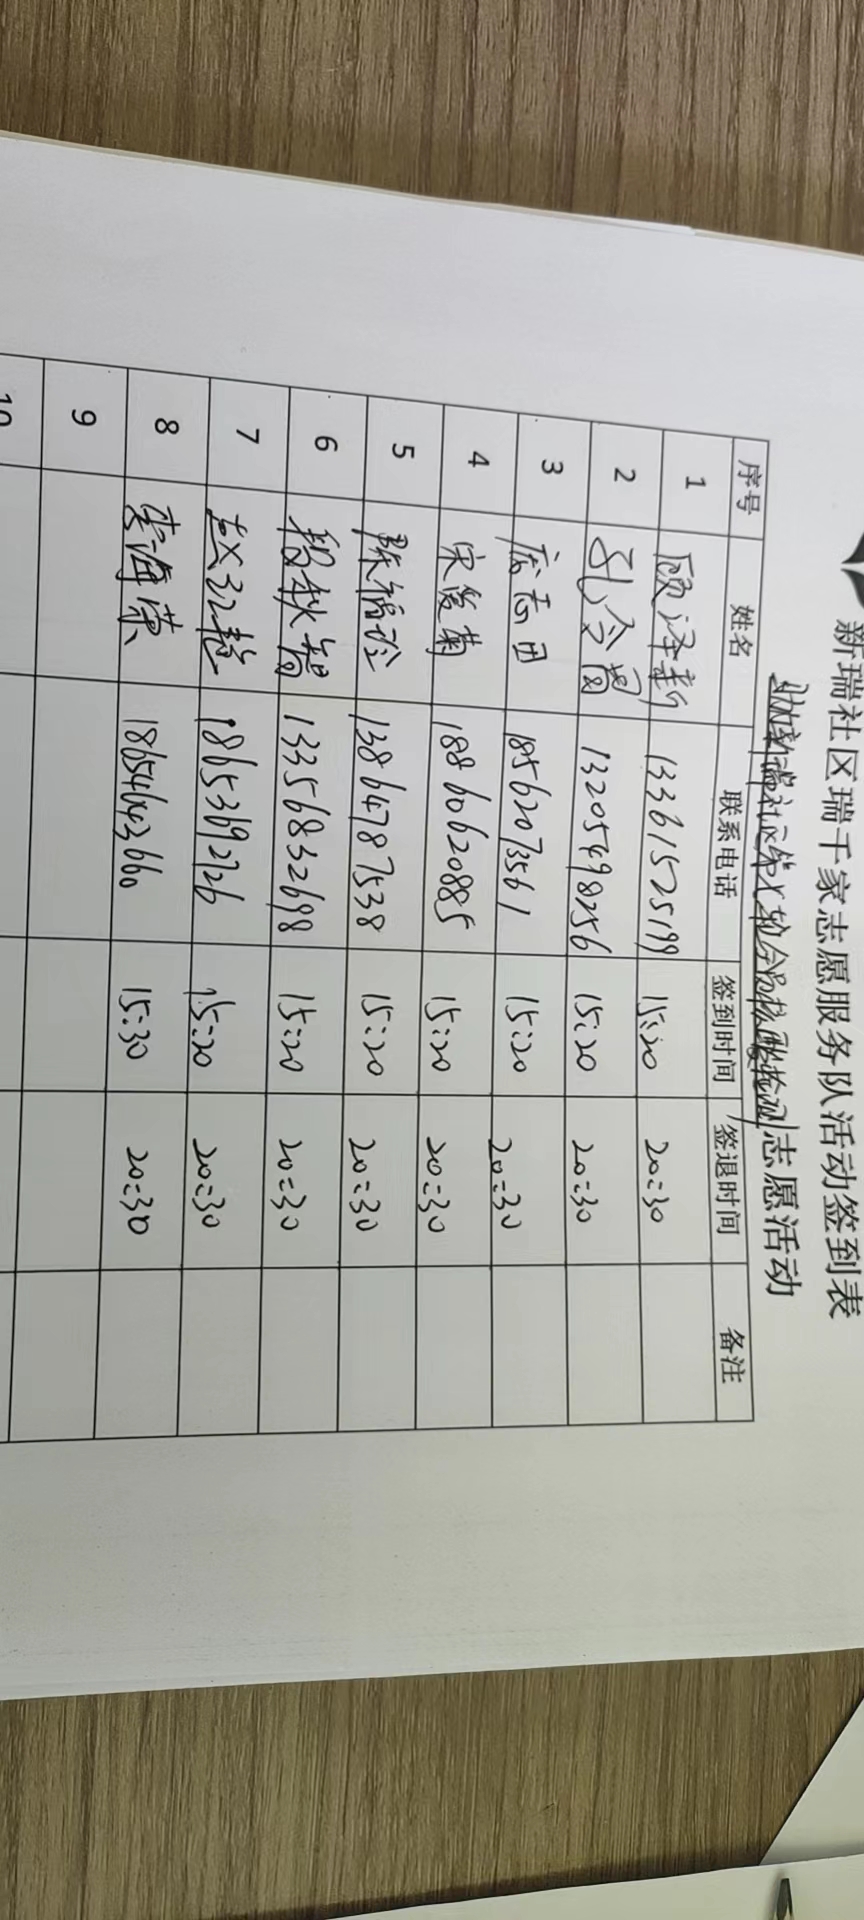 新瑞社区瑞千家志愿服务队活动签到表
助新瑞社区第七轮全员核酸检测志愿活动
序号 姓名 联系电话 签到时间 签退时间 备注
1 顾泽新 13361525199 15:20 20:30
2 孔令 13205498256 15:20 20:30
3 志田 18562073561 15:20 20:30
4 宋俊菊 18860620885 15:20 20:30
5 陈福玲 13864787538 15:20 20:30
6 程秋娟 13356832698 15:20 20:30
7 赵红艳 18653692726 15:20 20:30
8 李海荣 18654643660 15:30 20:30
9
10